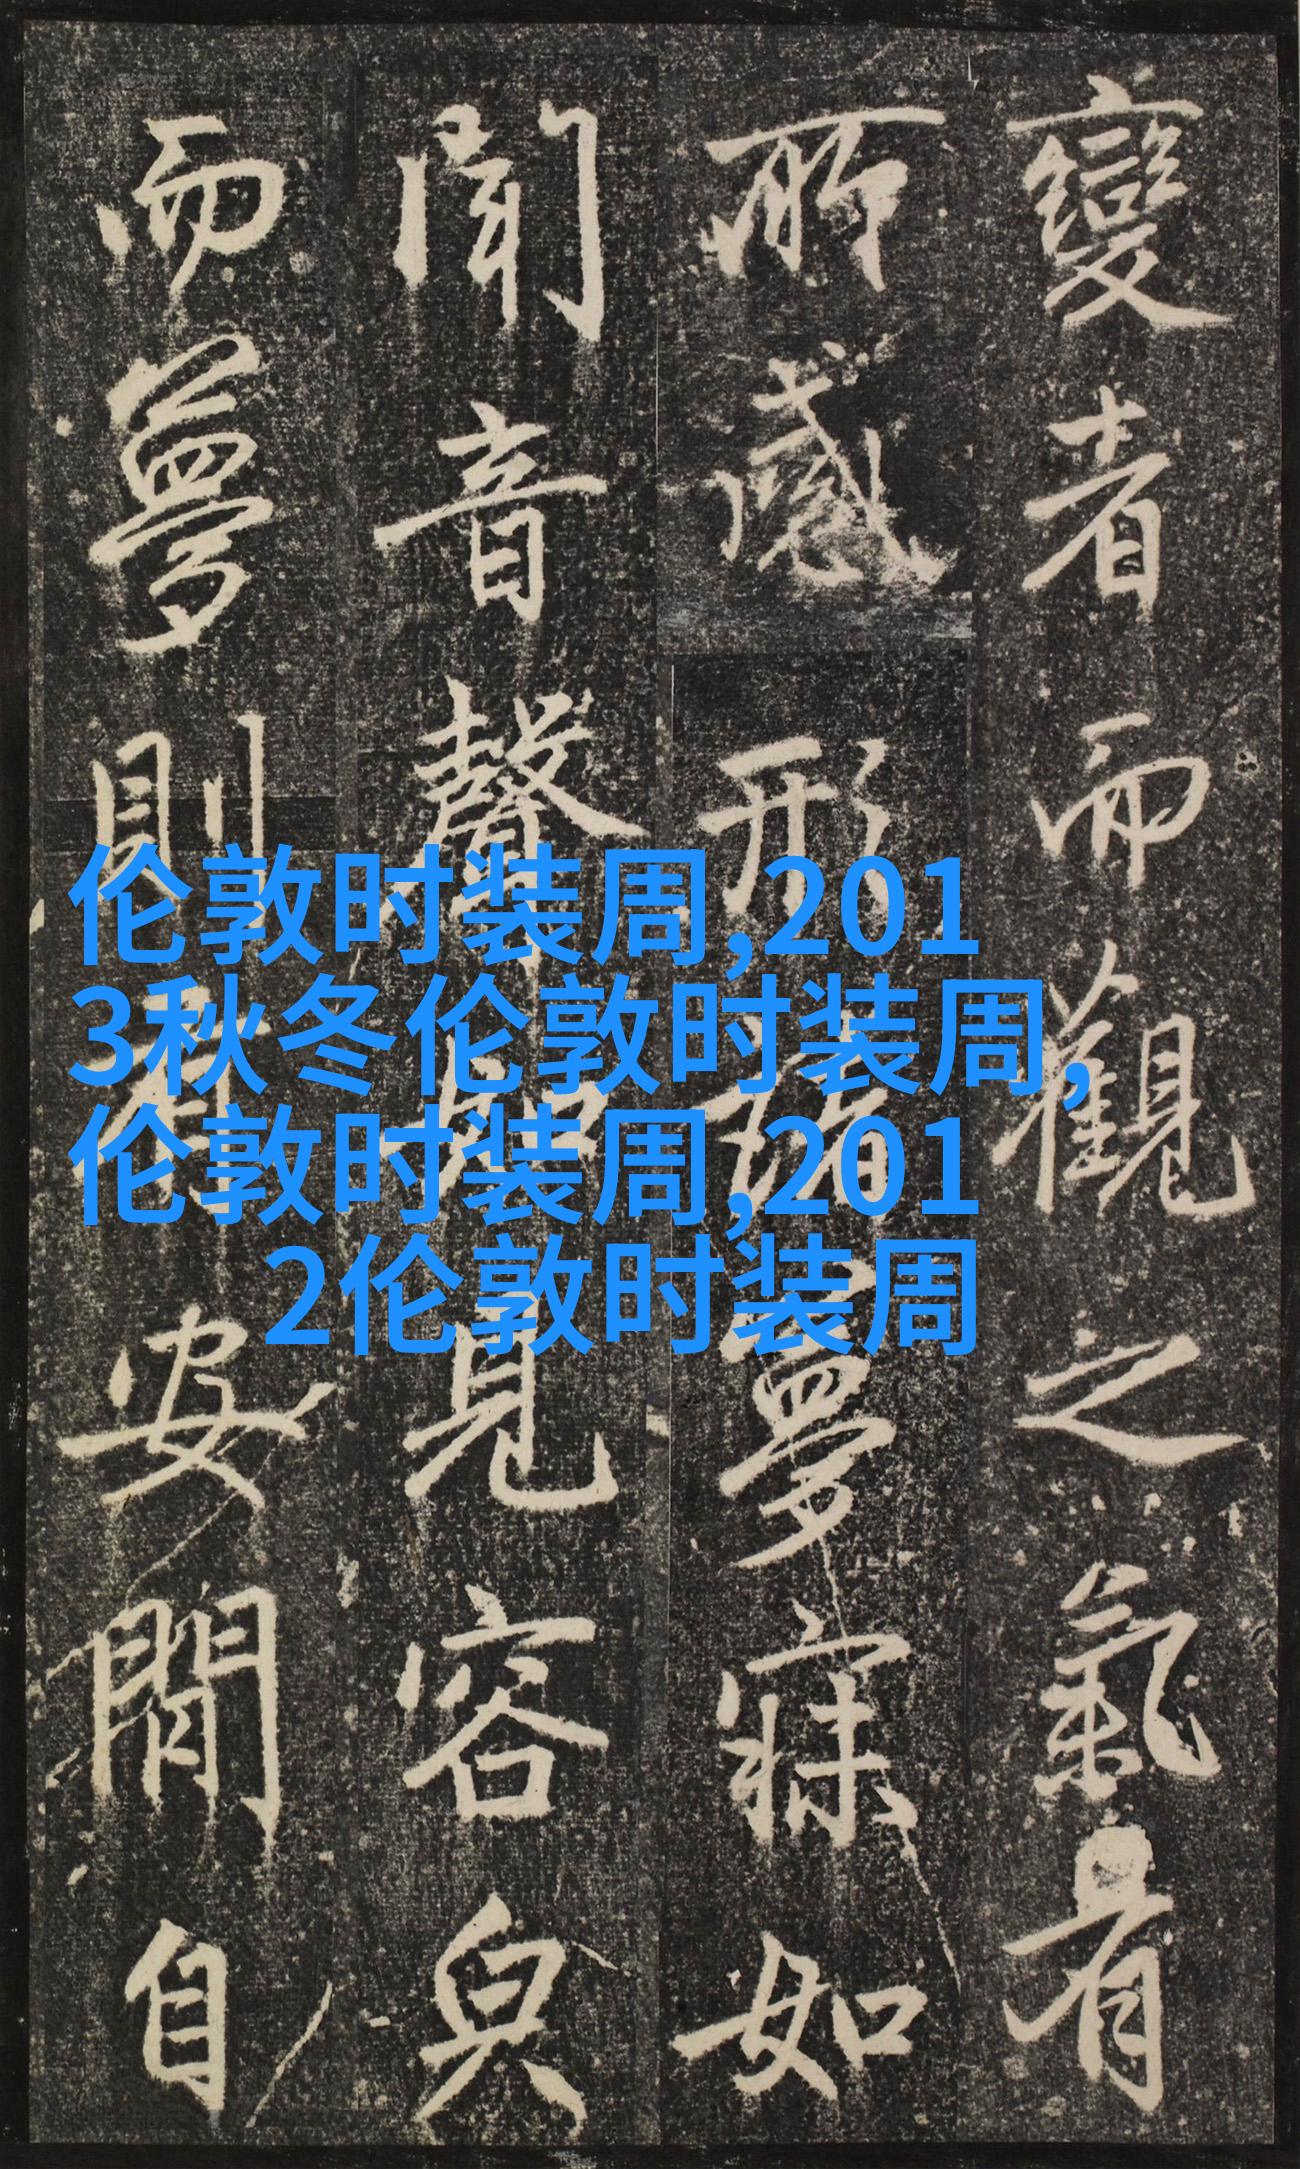 變者而觀之氣有
所感形諸夢寐如
聞音聲如見容皃
而夢則有安閒自
伦敦时装周,201
3秋冬伦敦时装周,
伦敦时装周,201
2伦敦时装周